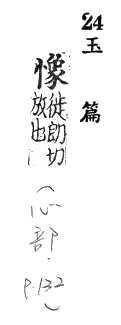 24
玉篇
徒朗切
放也
(心部·P.132)